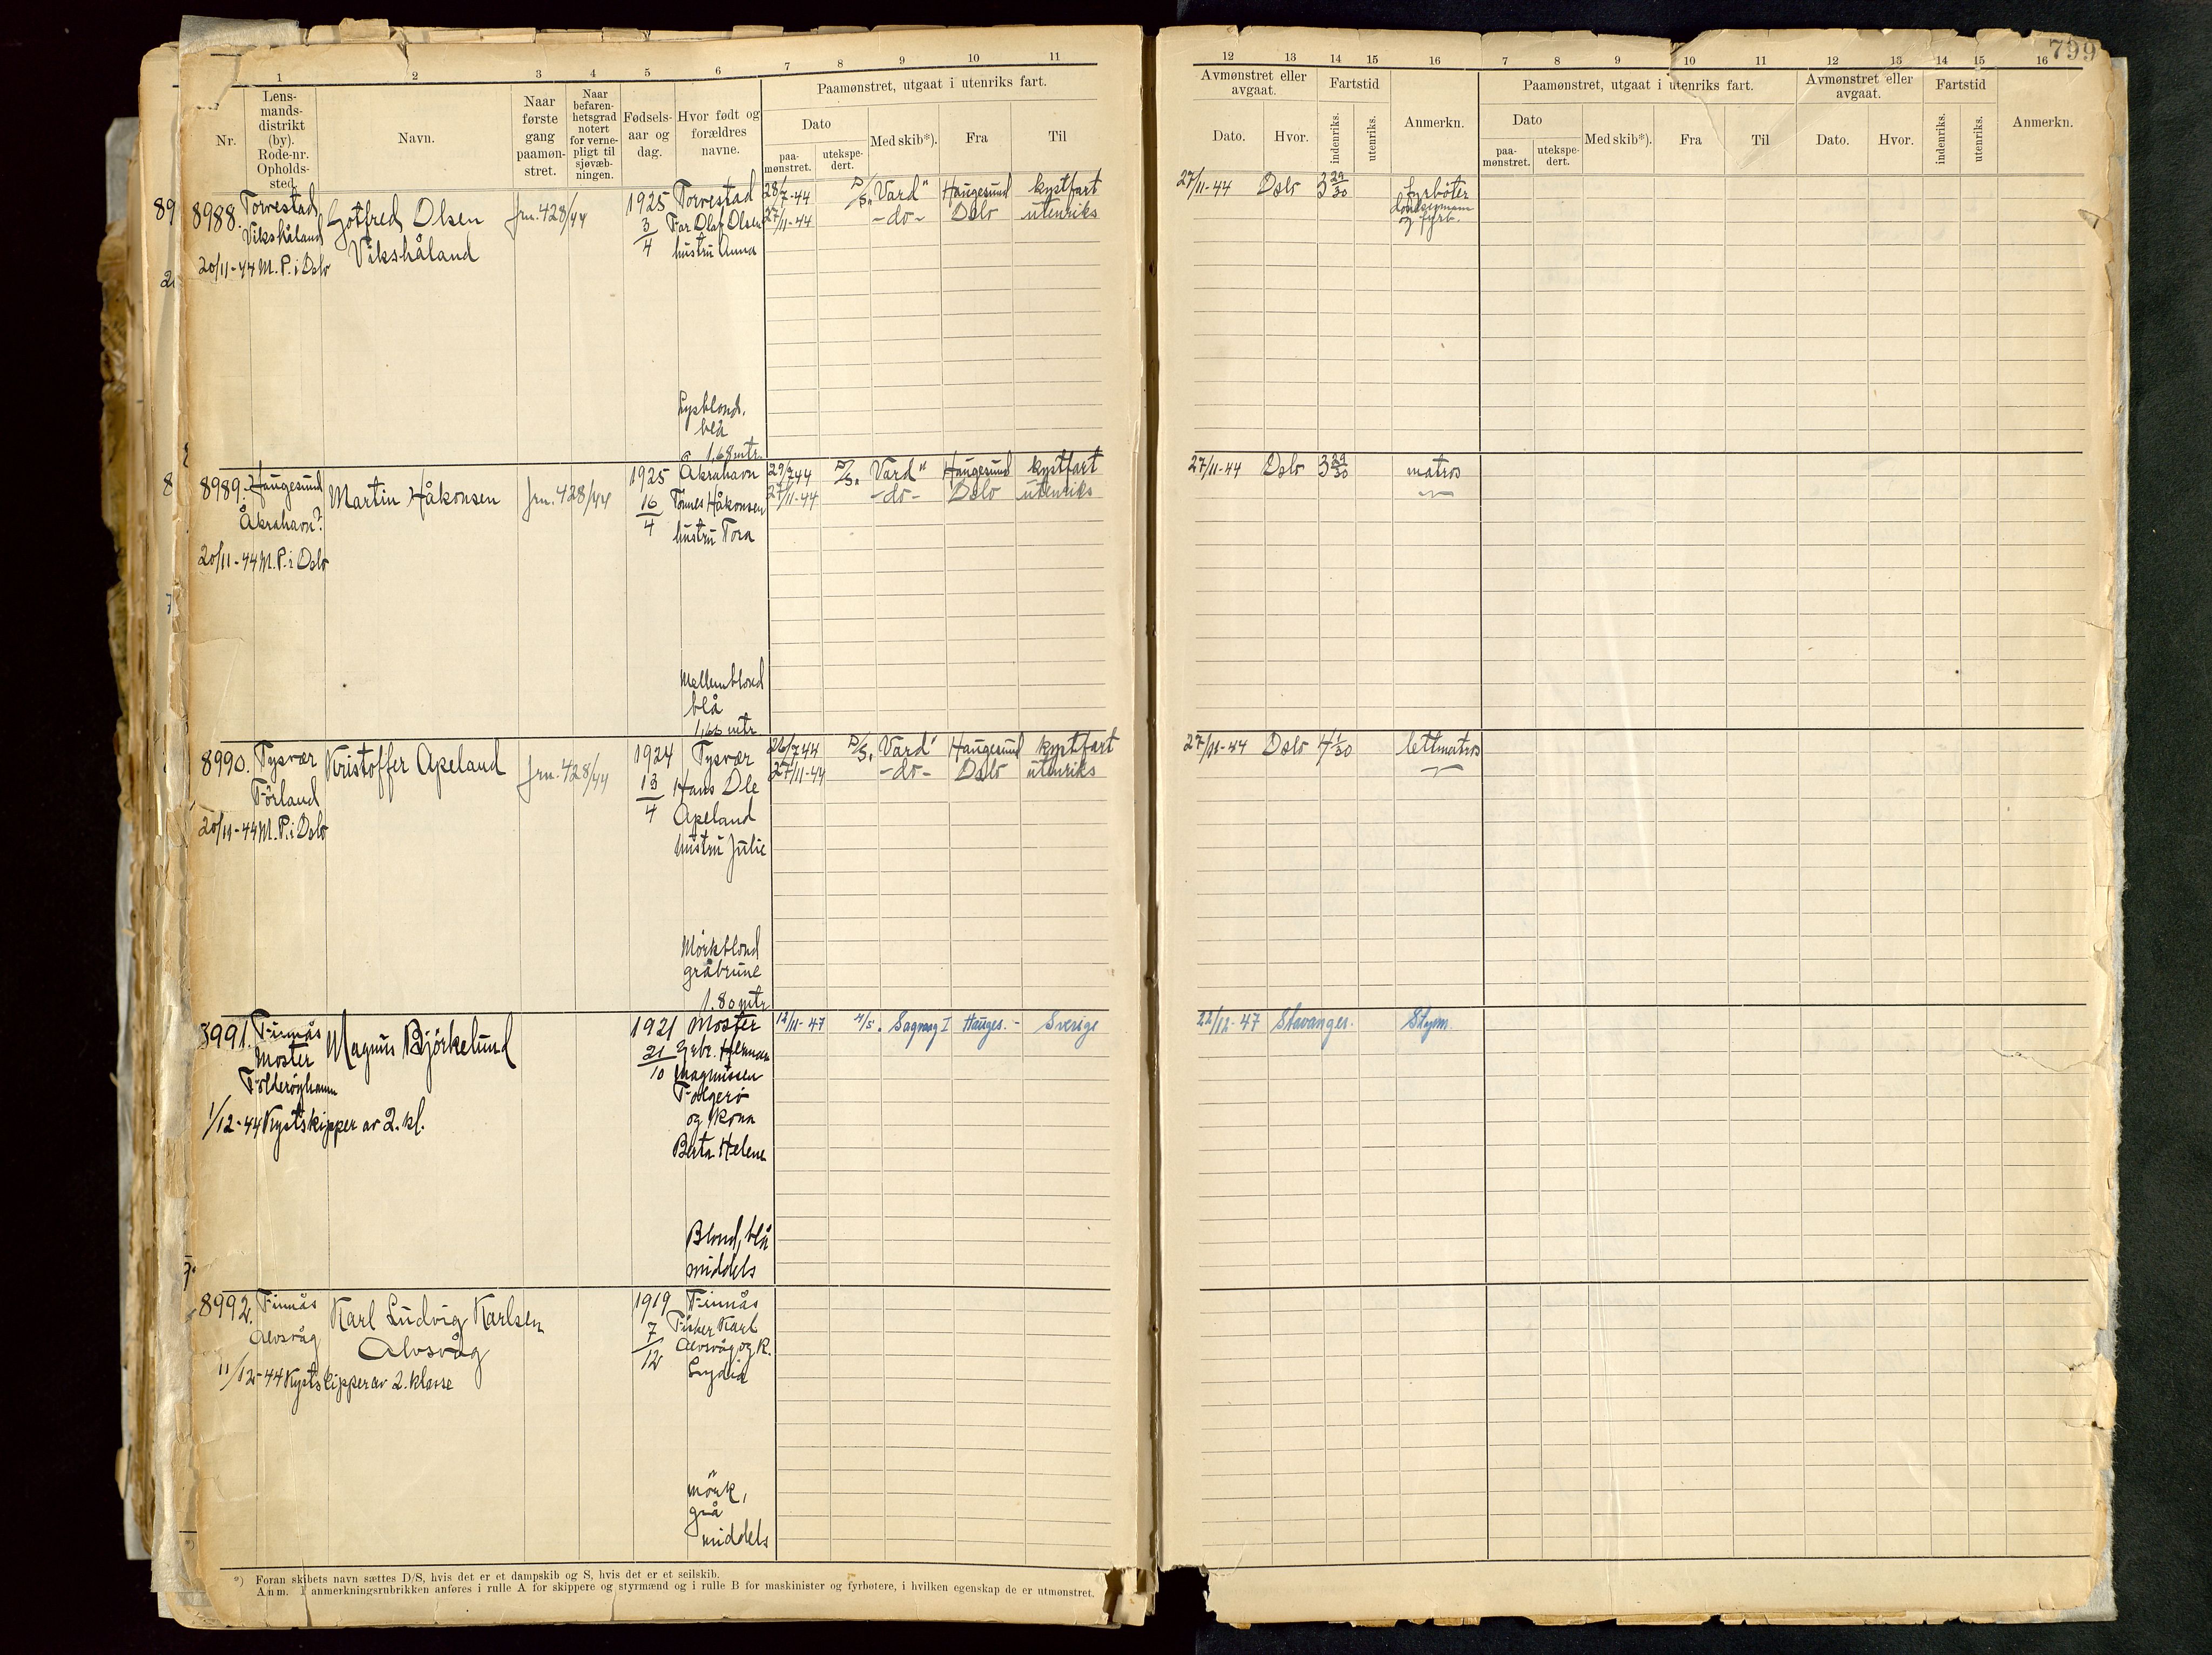 799
1 2 3 4 5 6 7 8 9 10 11
12 13 14 15 16 7 8 9 10 11 12 13 14 15 16
Nr.
Lens-
mands-
distrikt
(by).
Rode-nr.
Opholds-
sted.
Navn.
Naar
første
gang
paamøn-
stret.
Naar
befaren-
hetsgrad
notert
for verne-
pligt til
sjøvæb-
ningen.
Fødsels-
aar og
dag.
Hvor født og
forældres
navne.
Paamønstret, utgaat i utenriks fart.
Dato
paa-
mønstret.
utekspe-
dert.
Med skib*).
Fra
Til
Avmønstret eller
avgaat.
Dato.
Hvor.
Fartstid
indenriks.
utenriks.
Anmerkn.
Paamønstret, utgaat i utenriks fart.
Dato
paa-
mønstret.
utekspe-
dert.
Med skib*).
Fra
Til
Avmønstret eller
avgaat.
Dato.
Hvor.
Fartstid
indenriks.
utenriks.
Anmerkn.
8988. Torvestad
Vikshåland
20/11-44 M.P. i Oslo
Gotfred Olsen
Vikshåland
jrn. 428/44
1925
3/4
Torvestad
Far Olaf Olsen
hustru Anna
Lysblond,
blå
1,68 mtr.
28/7-44 D/S. "Vard" Haugesund kystfart
27/11-44 -do- Oslo utenriks
27/11-44 Oslo 3 29/30 fyrbøter
donkeymann
og fyrb.
8989. Haugesund
Åkrahavn?
20/11-44 M.P. i Oslo
Martin Håkonsen
jrn. 428/44
1925
16/4
Åkrahavn
Tønnes Håkonsen
hustru Tora
Mellemblond
blå
1,66 mtr
29/7 44 D/S. Vard" Haugesund kystfart
27/11-44 -do- Oslo utenriks
27/11-44 Oslo 3 29/30 matros
8990. Tysvær
Førland
20/11-44 M.P. i Oslo
Kristoffer Apeland
jrn. 428/44
1924
13/4
Tysvær
Hans Ole
Apeland
hustru Julie
Mørkblond
gråbrune
1.80 mtr
26/7 44 D/S. Vard" Haugesund kystfart
27/11-44 -do- Oslo utenriks
27/11-44 Oslo 4 1/30 lettmatros
8991. Finnås
Moster
1/12-44 Kystskipper av 2. kl.
Magnus Bjørkelund
1921
21/10
Moster
Grbr. Herman
Magnussen
Folgerø
og kona
Berta Helene
Blond, blå
middels
12/11-47 M/S. Sagvaag I Hauges.- Sverige
22/12-47 Stavanger. Styrm.
8992. Finnås
Alvsvåg
11/12-44 Kystskipper av 2. klasse
Karl Ludvig Karlsen
Alvsvåg
1919
7/12
Finnås
Fisker Karl
Alvsvåg og k.
Lydia
mørk,
grå
middels
*) Foran skibets navn sættes D/S, hvis det er et dampskib og S, hvis det er et seilskib.
Anm. I anmerkningsrubrikken anføres i rulle A for skippere og styrmænd og i rulle B for maskinister og fyrbøtere, i hvilken egenskap de er utmønstret.